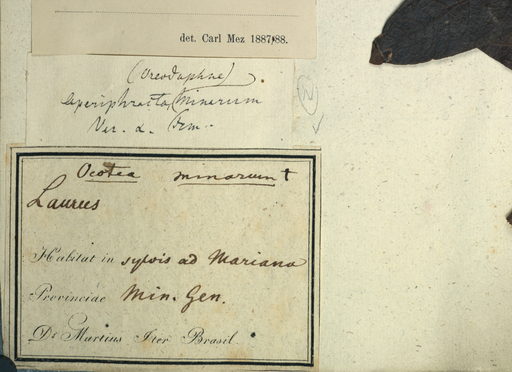 det. Carl Mez 1887/88.
(Oreodaphne)
Minarum
Var. α. Fem.
Ocotea minarum †
Laurus
Habitat in sylvis ad Mariana
Provinciae Min. Gen.
Dr Martius Iter Brasil.